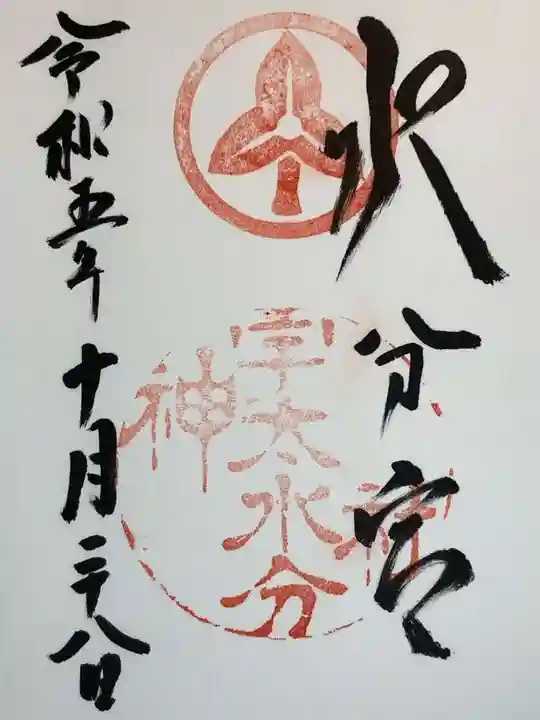 水分宮
宇太水分
神
令和五年十月二十八日